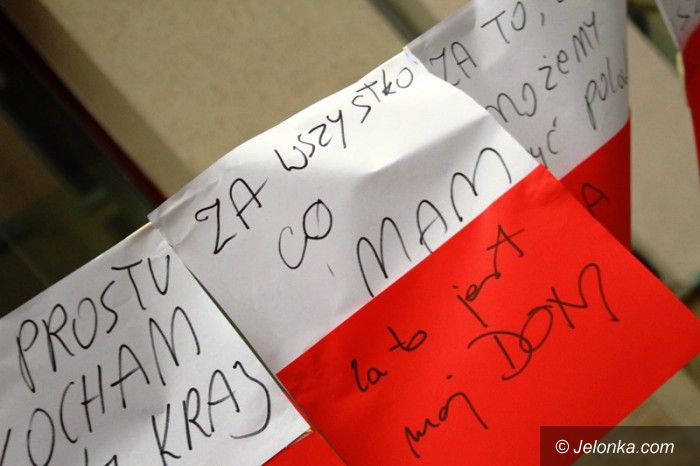 PROSTU
KOCHAM
KRAJ
ZA WSZYSTKO
CO MAM
za to jest
mój DOM
ZA TO,
MOŻEMY
© Jelonka.com